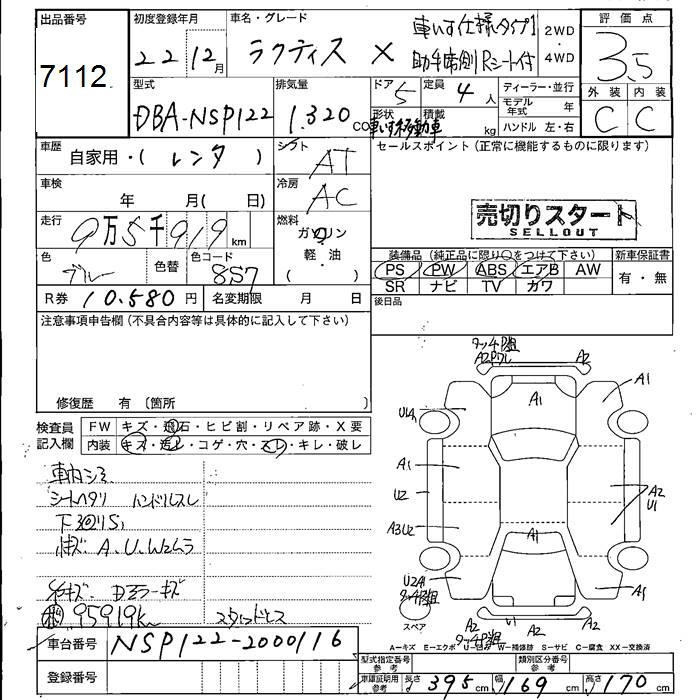 出品番号 7112
初度登録年月 22年12月
車名・グレード ラクティス X
車いす仕様タイプ1
助手席側Rシート付
2WD・4WD
評価点 3.5
外装 内装
C C
型式 DBA-NSP122
排気量 1.320 CC
ドア 5
定員 4人
形状 車いす移動車
積載 kg
ディーラー・並行
モデル年式 年
ハンドル 左・右
車歴 自家用・(レンタ)
シフト AT
セールスポイント(正常に機能するものに限ります)
車検 年 月(日)
冷房 AC
売切りスタート
SELLOUT
走行 9万5千919km
燃料 ガソリン・軽油・( )
色 ブルー
色替
色コード 8S7
装備品(純正品に限り○をつけて下さい)
新車保証書
PS PW ABS エアB AW
有・無
SR ナビ TV カワ
R券 10.580円
名変期限 月 日
後日品
注意事項申告欄(不具合内容等は具体的に記入して下さい)
修復歴 有〔箇所 〕
検査員記入欄
FW キズ・飛石・ヒビ割・リペア跡・X要
内装 キズ・汚し・コゲ・穴・スレ・キレ・破レ
車内シミ
シートヘタリ ハンドルスレ
下回りS1
A.U.Wスムラ
Dミラーキズ
95919km スタッドレス
タッチP組
A2 A2
A1
A1
U1A1
A1
U2
A3U2
A2
U1
A1
A1
U2A1
タッチP組
A2 U1 A2 A2
タッチP組
スペア
A-キズ E-エクボ U-凹み W-補修跡 S-サビ C-腐食 XX-交換済
車台番号 NSP122-2000116
登録番号
型式指定番号 参考
類別区分番号 参考
車庫証明用 参考 長さ 395cm 幅 169cm 高さ 170cm